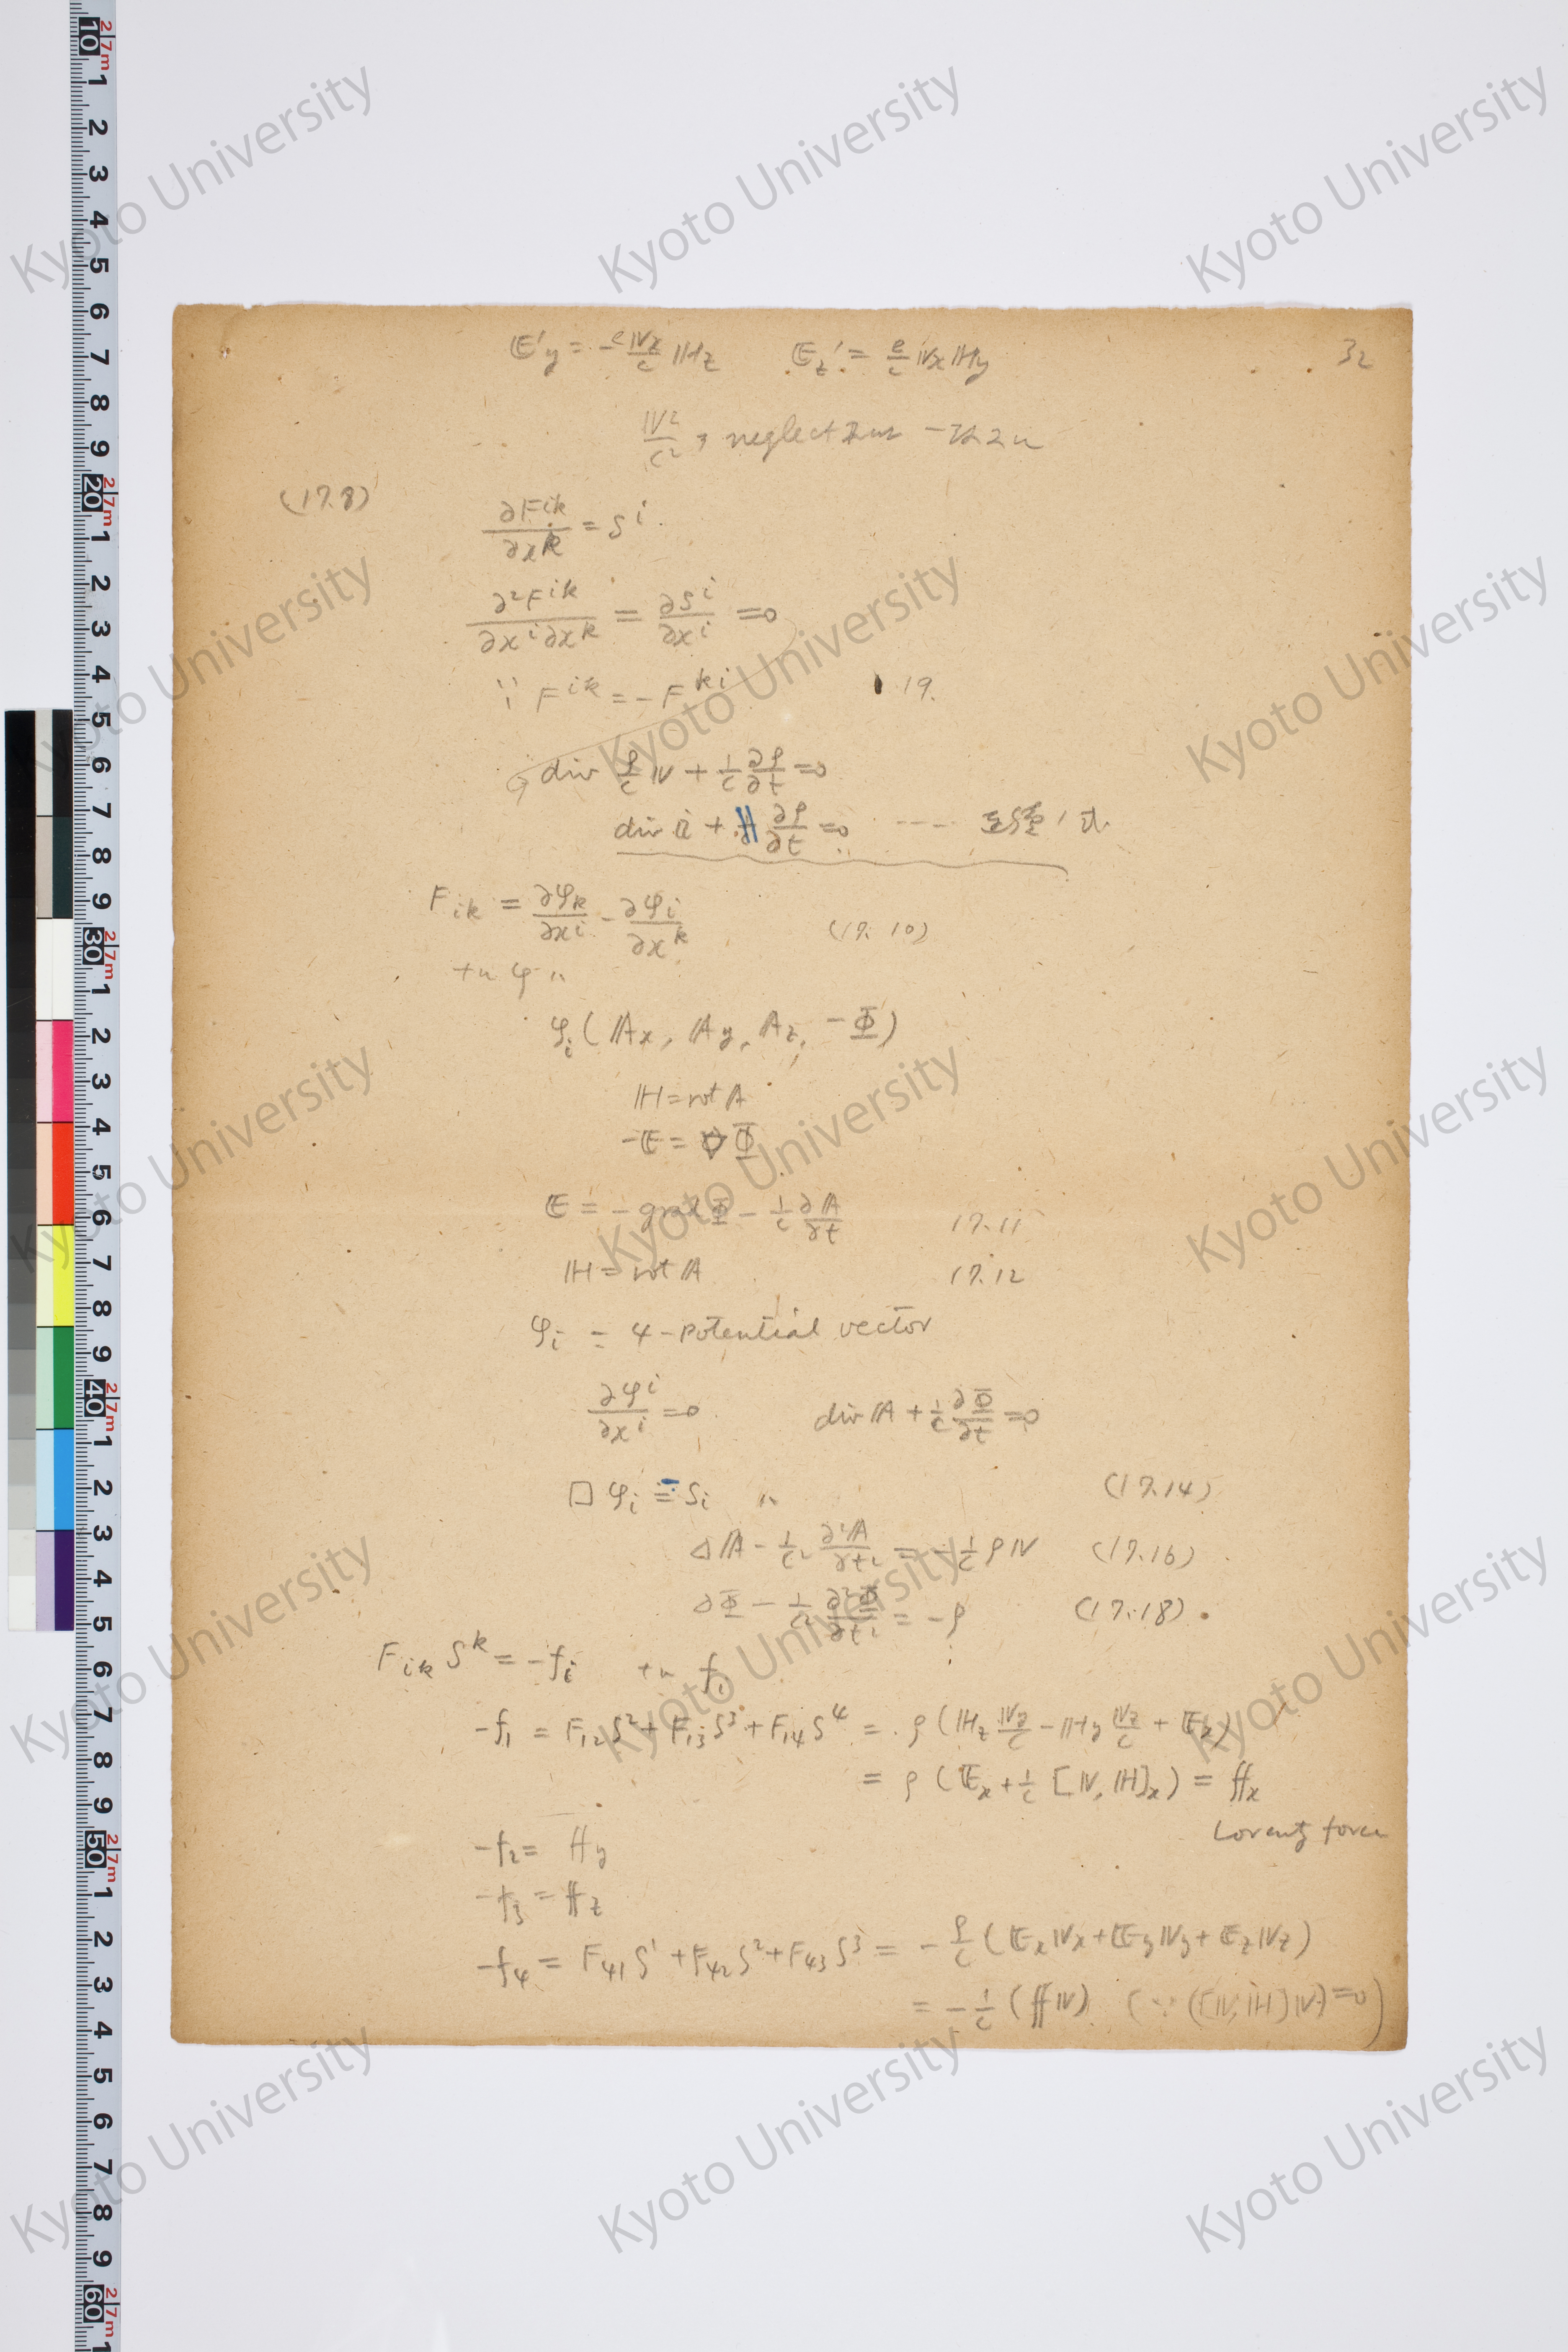 32
𝔼'y = -e𝕍x/c ℍz  𝔼z' = e/c 𝕍xℍy
𝕍²/c² ヲ neglect
(17.8)
∂F^{ik}/∂x^k = S^i
∂²F^{ik}/∂x^i∂x^k = ∂S^i/∂x^i = 0
∵ F^{ik} = -F^{ki}  19.
div ρ/c 𝕍 + 1/c ∂ρ/∂t = 0
div 𝕚 + ∂ρ/∂t = 0 ----
F_{ik} = ∂φ_k/∂x^i - ∂φ_i/∂x^k  (17.10)
φ_i (𝔸x, 𝔸y, 𝔸z, -Φ)
ℍ = rot 𝔸
-𝔼 = ∇Φ
𝔼 = -grad Φ - 1/c ∂𝔸/∂t  17.11
ℍ = rot 𝔸  17.12
φ_i = 4-potential vector
∂φ^i/∂x^i = 0  div 𝔸 + 1/c ∂Φ/∂t = 0
□ φ_i = S_i  (17.14)
Δ𝔸 - 1/c² ∂²𝔸/∂t² = -1/c ρ𝕍  (17.16)
ΔΦ - 1/c² ∂²Φ/∂t² = -ρ  (17.18)
F_{ik} S^k = -f_i  f_i
-f_1 = F_{12}S² + F_{13}S³ + F_{14}S⁴ = ρ(ℍz 𝕍y/c - ℍy 𝕍z/c + 𝔼x)
= ρ(𝔼x + 1/c [𝕍, ℍ]x) = 𝕗x
Lorentz force
-f_2 = 𝕗y
-f_3 = 𝕗z
-f_4 = F_{41}S¹ + F_{42}S² + F_{43}S³ = -ρ/c (𝔼x𝕍x + 𝔼y𝕍y + 𝔼z𝕍z)
= -1/c (𝕗𝕍) (∵ ([𝕍, ℍ]𝕍) = 0)